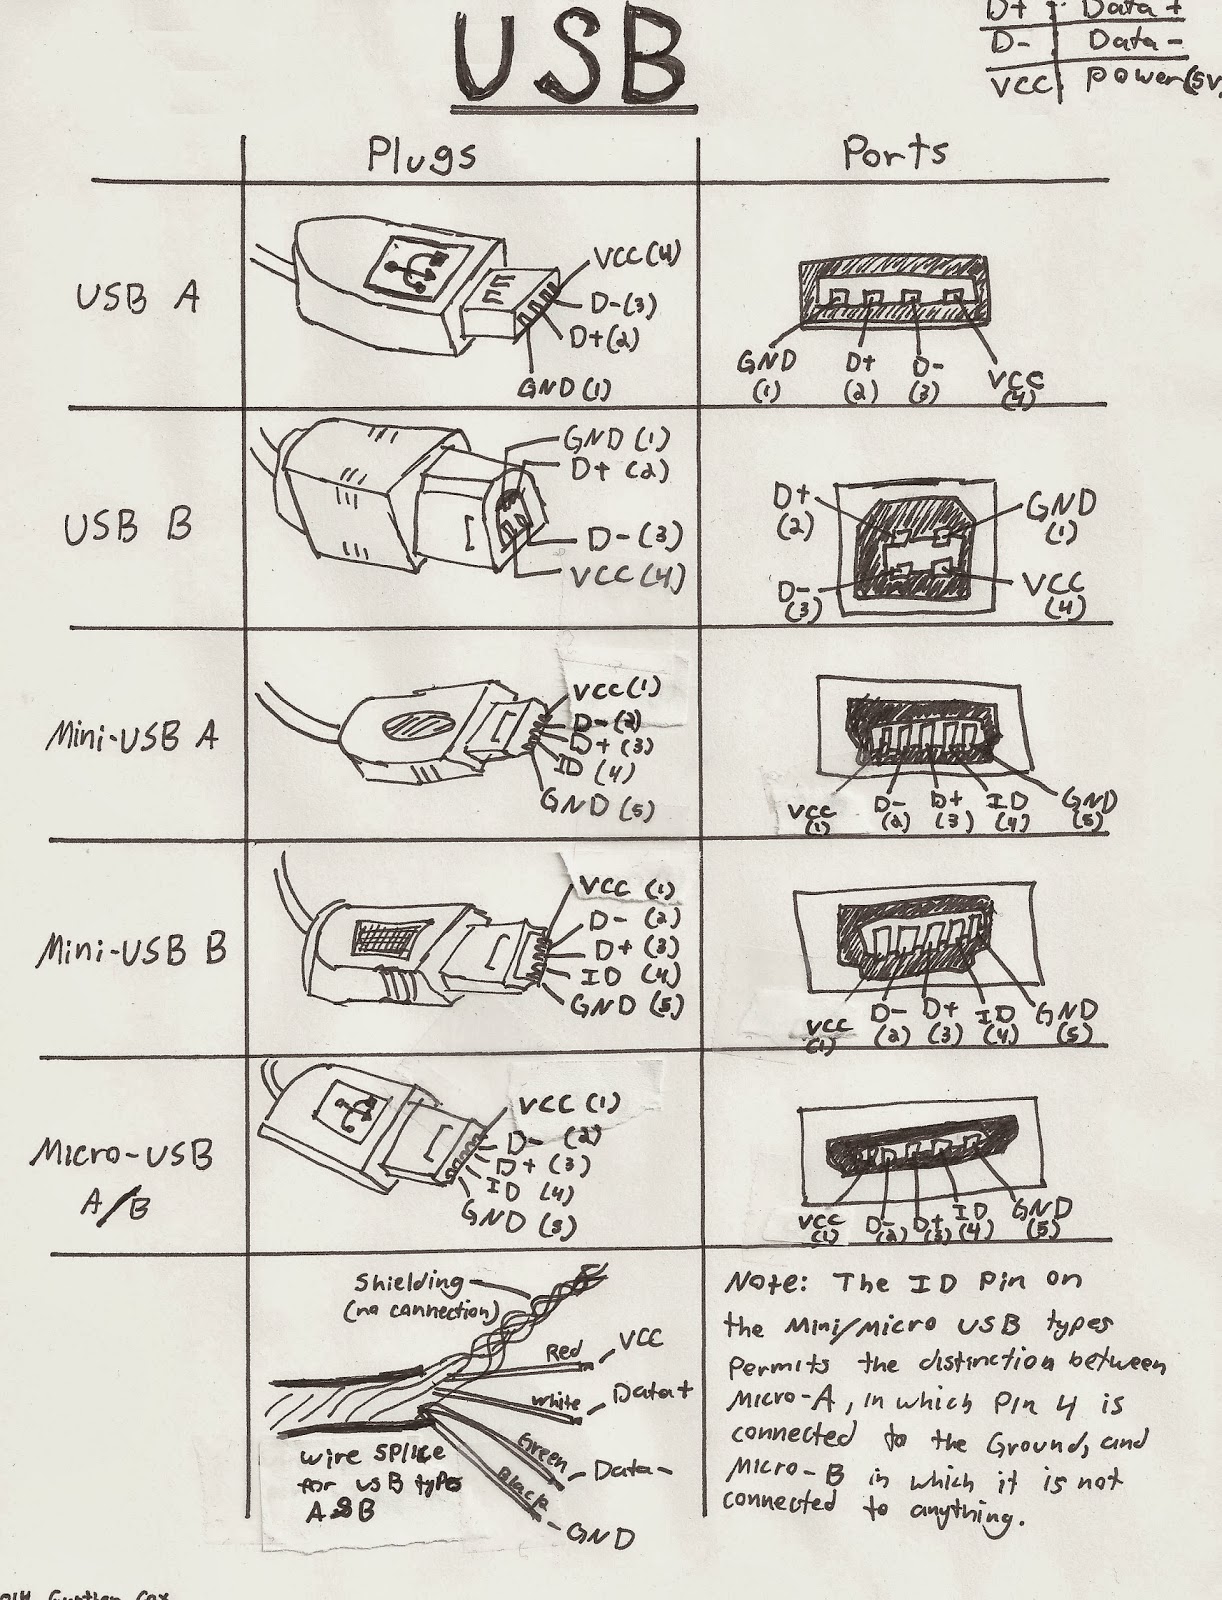 USB
D+ Data+
D- Data-
VCC Power(5V)
Plugs
Ports
USB A
VCC(4)
D-(3)
D+(2)
GND(1)
GND
(1)
D+
(2)
D-
(3)
VCC
(4)
USB B
GND (1)
D+ (2)
D-(3)
VCC(4)
D+
(2)
GND
(1)
D-
(3)
VCC
(4)
Mini-USB A
VCC(1)
D-(2)
D+(3)
ID (4)
GND (5)
VCC
(1)
D-
(2)
D+
(3)
ID
(4)
GND
(5)
Mini-USB B
VCC (1)
D- (2)
D+ (3)
ID (4)
GND (5)
VCC
(1)
D-
(2)
D+
(3)
ID
(4)
GND
(5)
Micro-USB
A/B
VCC (1)
D- (2)
D+ (3)
ID (4)
GND (5)
VCC
(1)
D-
(2)
D+
(3)
ID
(4)
GND
(5)
Shielding
(no connection)
Red
VCC
White
Data+
Green
Data-
Black
GND
wire splice
for USB types
A & B
Note: The ID Pin on
the Mini/Micro USB types
Permits the distinction between
Micro-A, in which Pin 4 is
connected to the Ground, and
Micro-B in which it is not
connected to anything.